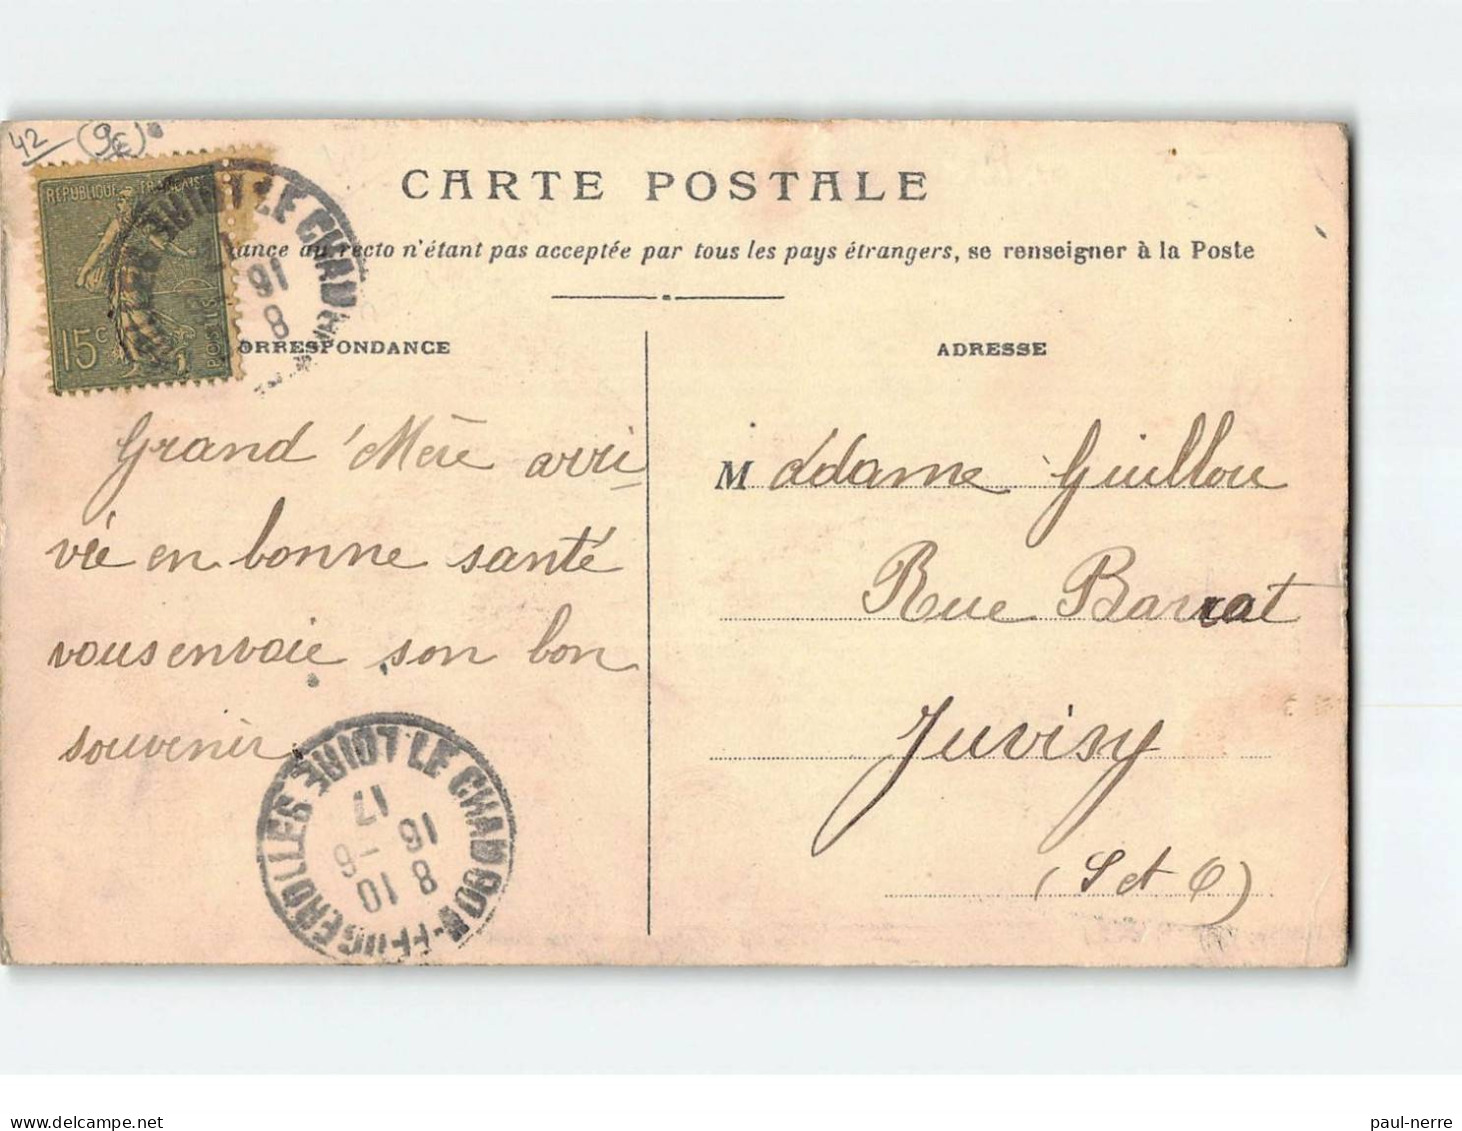 42 (9€)
CARTE POSTALE
REPUBLIQUE FRANÇAISE
ance au recto n'étant pas acceptée par tous les pays étrangers, se renseigner à la Poste
15c
POSTES
LE CHAMBON-FEUGEROLLES LOIRE
16
8
ORRESPONDANCE
ADRESSE
Grand'Mère arri
vée en bonne santé
vous envoie son bon
souvenir
Madame Guillou
Rue Barrat
Juvisy
(S et O)
LE CHAMBON-FEUGEROLLES LOIRE
17
16
8
10
paul-nerre